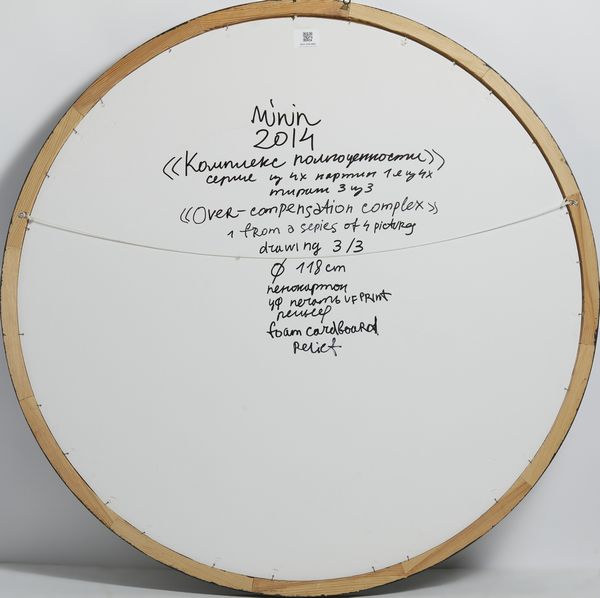 Minin
2014
«Комплекс полноценности»
серия из 4х картин 1я из 4х
тираж 3 из 3
«Over-compensation complex»
1 from a series of 4 pictures
drawing 3/3
Ø 118 cm
пенокартон
уф печать UF PRINT
рельеф
foam cardboard
relief